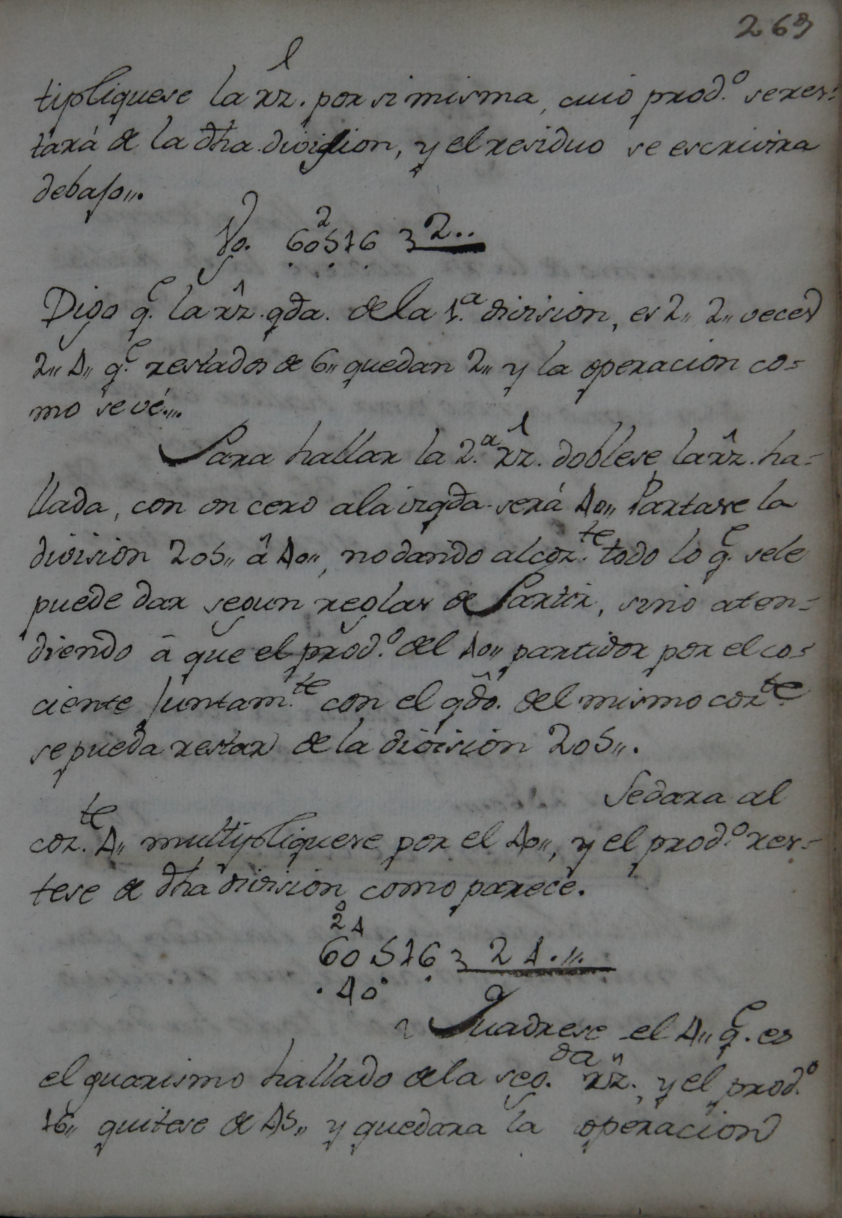 269
tipliquese la rẑ. por si misma, cuio prod.º se res-
tará de la dha. division, y el residuo se escrivira
debajo,,.
2
Vo. 60516 3 2..
Digo q.e la rẑ. qda. de la 1.a division, es 2,, 2,, veces
2,, 4,, q.e restados de 6,, quedan 2,, y la operacion co-
mo se vé,,.
Para hallar la 2.a rẑ. doblese la rẑ. ha-
llada, con on cero ala izqda. será 40,, Partase la
division 205,, â 40,, no dando al coz.te todo lo q.e sele
puede dar segun reglas de Partir, sino aten-
diendo â que el prod.º del 40,, partidor por el co-
ciente Juntam.te con el qdo. del mismo coz.te
se pueda restar de la division 205,,.
Sedara al
coz.te 4,, multipliquese por el 40,, y el prod.º res-
tese de dha division como parece.
0
24
60516 3 24.,,
. 40 .
Quadrese el 4,, q.e es
el guarismo hallado de la seg.da rẑ., y el prod.º
16,, quitese de 45,, y quedara la operacion